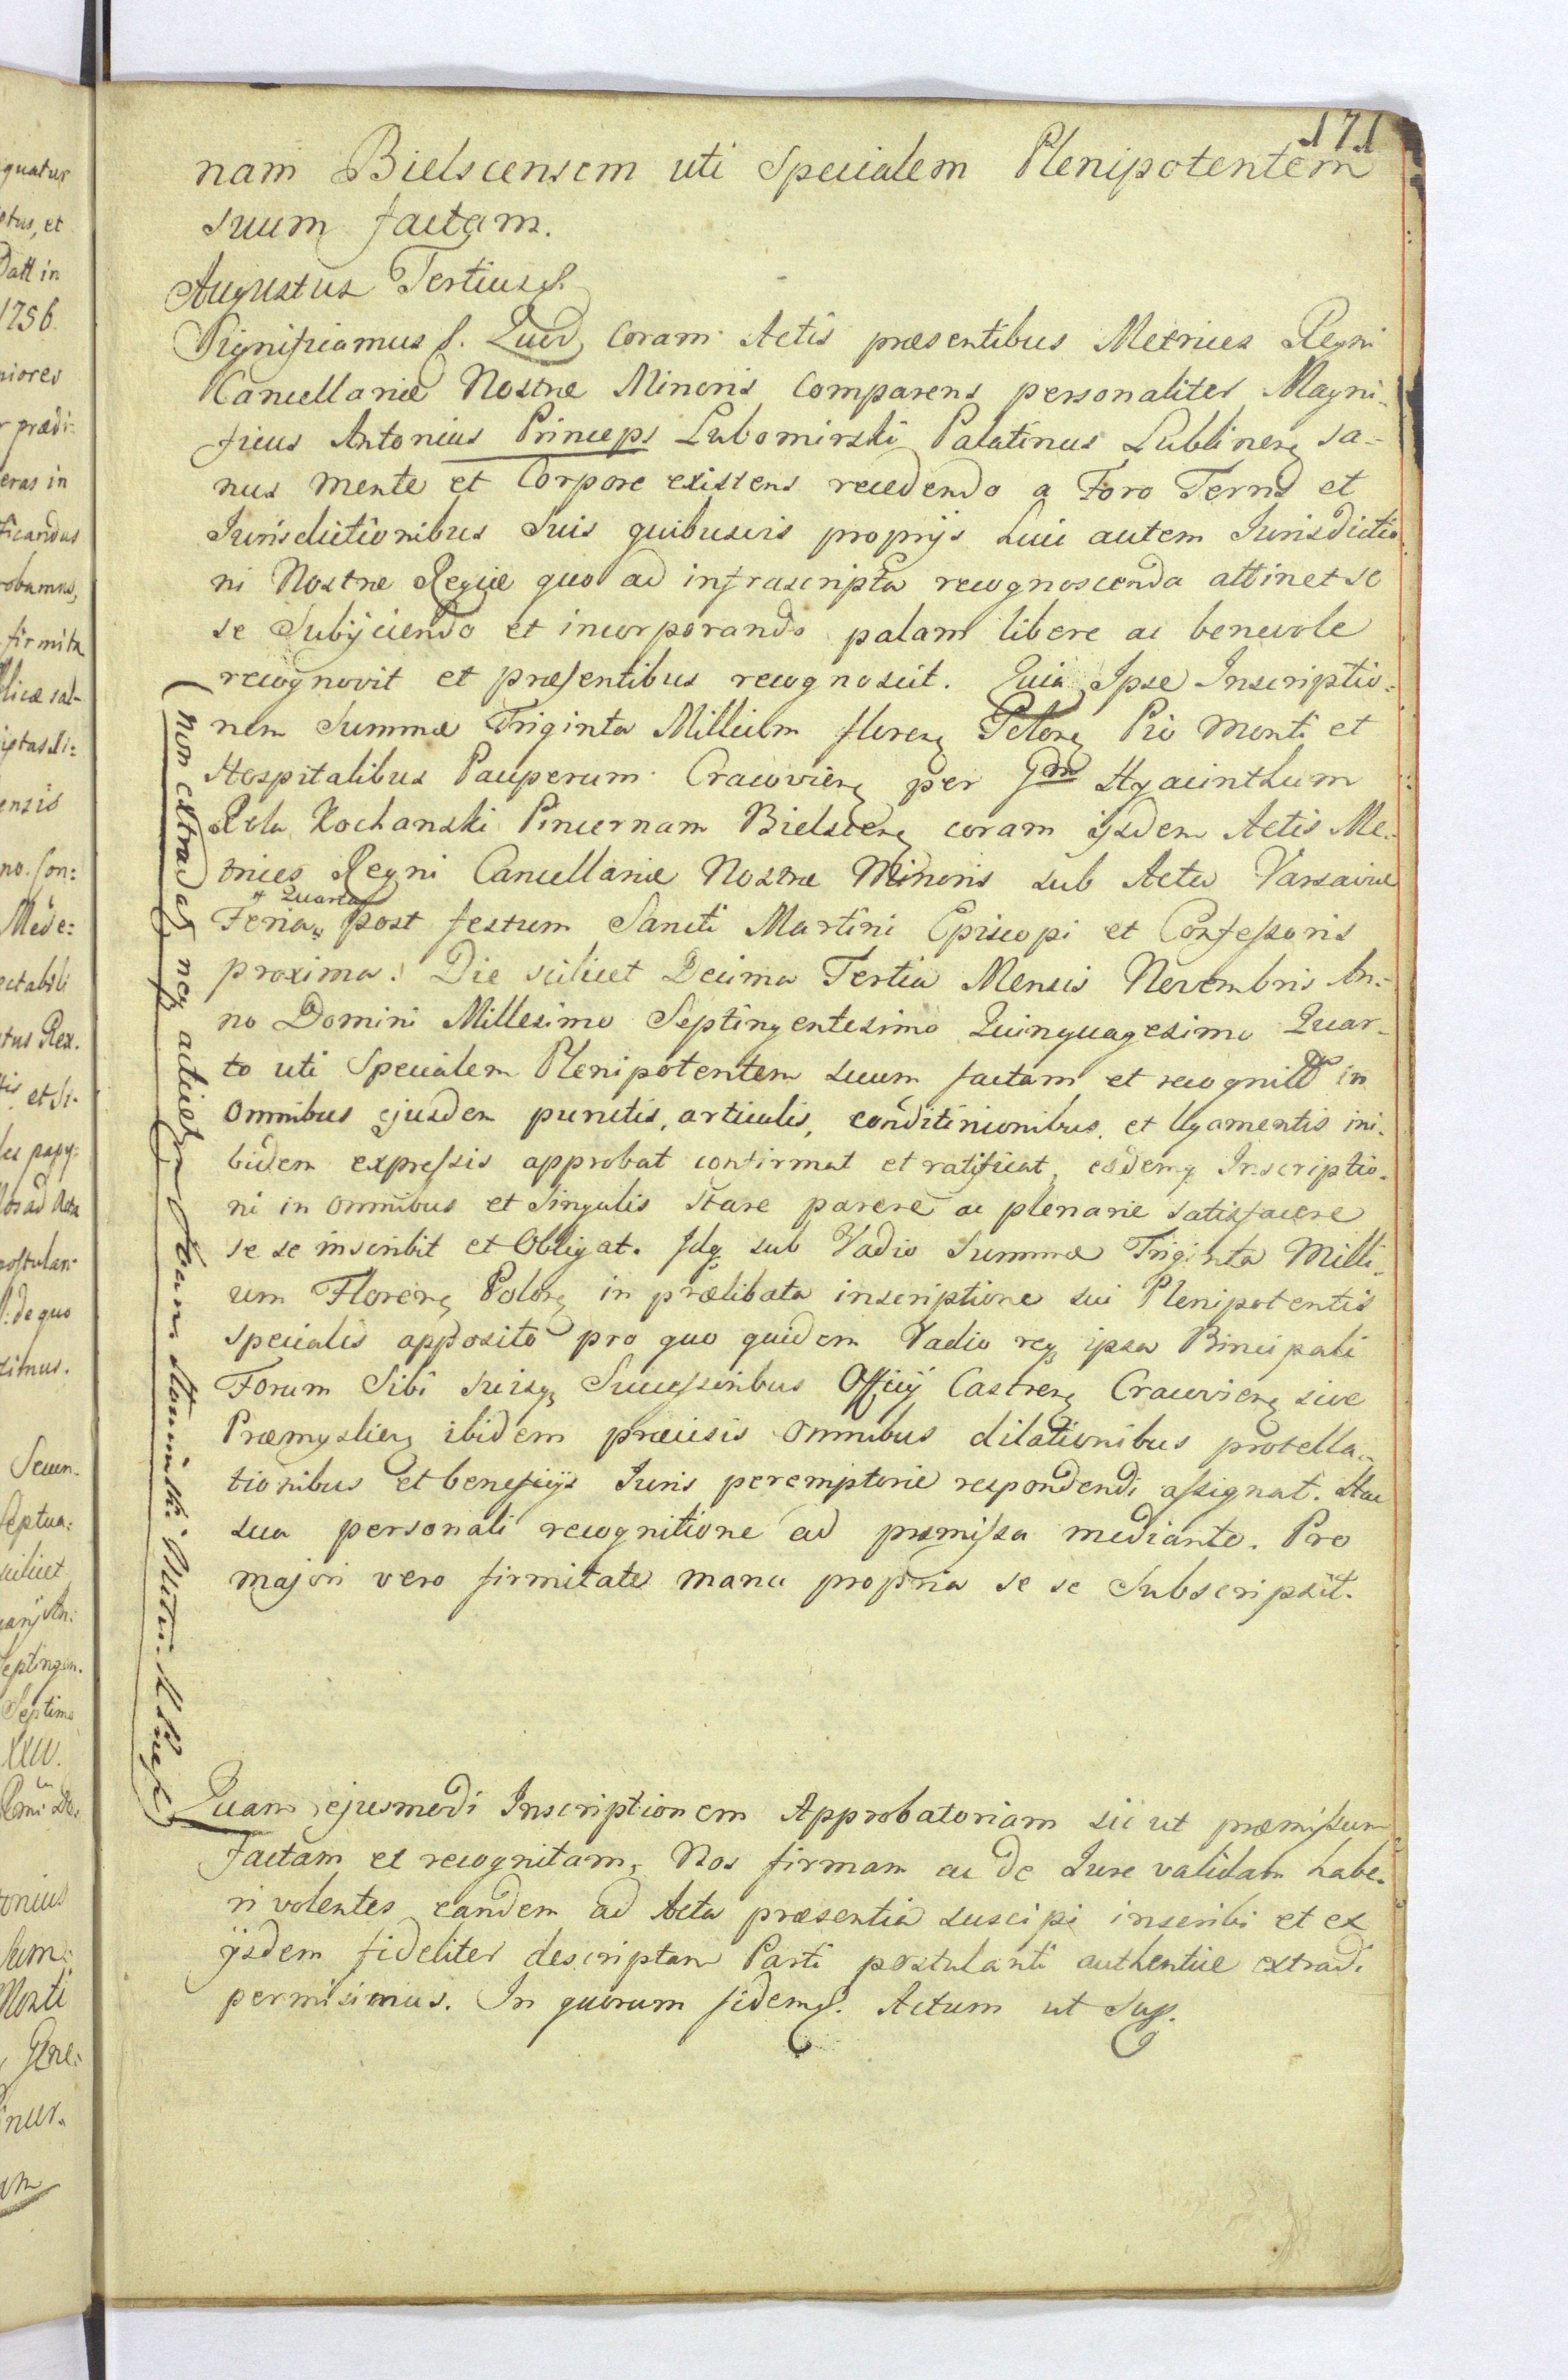 171
nam Bielscensem uti Specialem Plenipotentem
suum factam.
Augustus Tertius &.
Significamus &. Quod coram Actis præsentibus Metrices Regni
Cancellariæ Nostræ Minoris comparens personaliter Magni-
ficus Antonius Princeps Lubomirski Palatinus Lublinens sa-
nus mente et Corpore existens recedendo a Foro Terris et
Jurisdictionibus Suis quibusvis proprijs huic autem Jurisdictio
ni Nostræ Regiæ quo ad infrascripta recognoscenda attinet se
se Subijciendo et incorporando palam libere ac benevole
recognovit et præsentibus recognoscit. Quia Ipse Inscriptio-
nem Summæ Triginta Millium floren Polon Pio Monti et
Hospitalibus Pauperum Cracovien per Gdm Hyacinthum
Rola Kochanski Pincernam Bielscens coram ijsdem Actis Me-
trices Regni Cancellariæ Nostræ Minoris sub Acta Varsaviæ
Feria Quarta post festum Sancti Martini Episcopi et Confessoris
proxima. Die scilicet Decima Tertia Mensis Novembris An-
no Domini Millesimo Septingentesimo Quinquagesimo Quar-
to uti Specialem Plenipotentem suum factam et recognitam in
omnibus ejusdem punctis, articulis, conditinionibus, et ligamentis ini-
bidem expressis approbat confirmat et ratificat, eidemq Inscriptio-
ni in omnibus et singulis stare parere ac plenarie satisfacere
se se inscribit et Obligat. Idq sub Vadio Summæ Triginta Milli-
um Floren Polon in prælibata inscriptione sui Plenipotentis
specialis apposito pro quo quidem Vadio req ipsa Principali
Forum Sibi suisq Successoribus Officij Castren Cracovien sive
Præmyslien ibidem præcisis omnibus dilationibus protella-
tionibus et beneficijs Juris peremptorie respondendi assignat. Hac
sua personali recognitione ad præmissa mediante. Pro
majori vero firmitate manu propria se se Subscripsit.
Quam ejusmodi Inscriptionem Approbatoriam sic ut præmissum
factam et recognitam, Nos firmam ac de Jure validam habe-
ri volentes eandem ad Acta præsentia suscipi inscribi et ex
ijsdem fideliter descriptam Parti postulanti authentice extradi
permisimus. In quorum fidem &. Actum ut Sup.
(non extradat neq